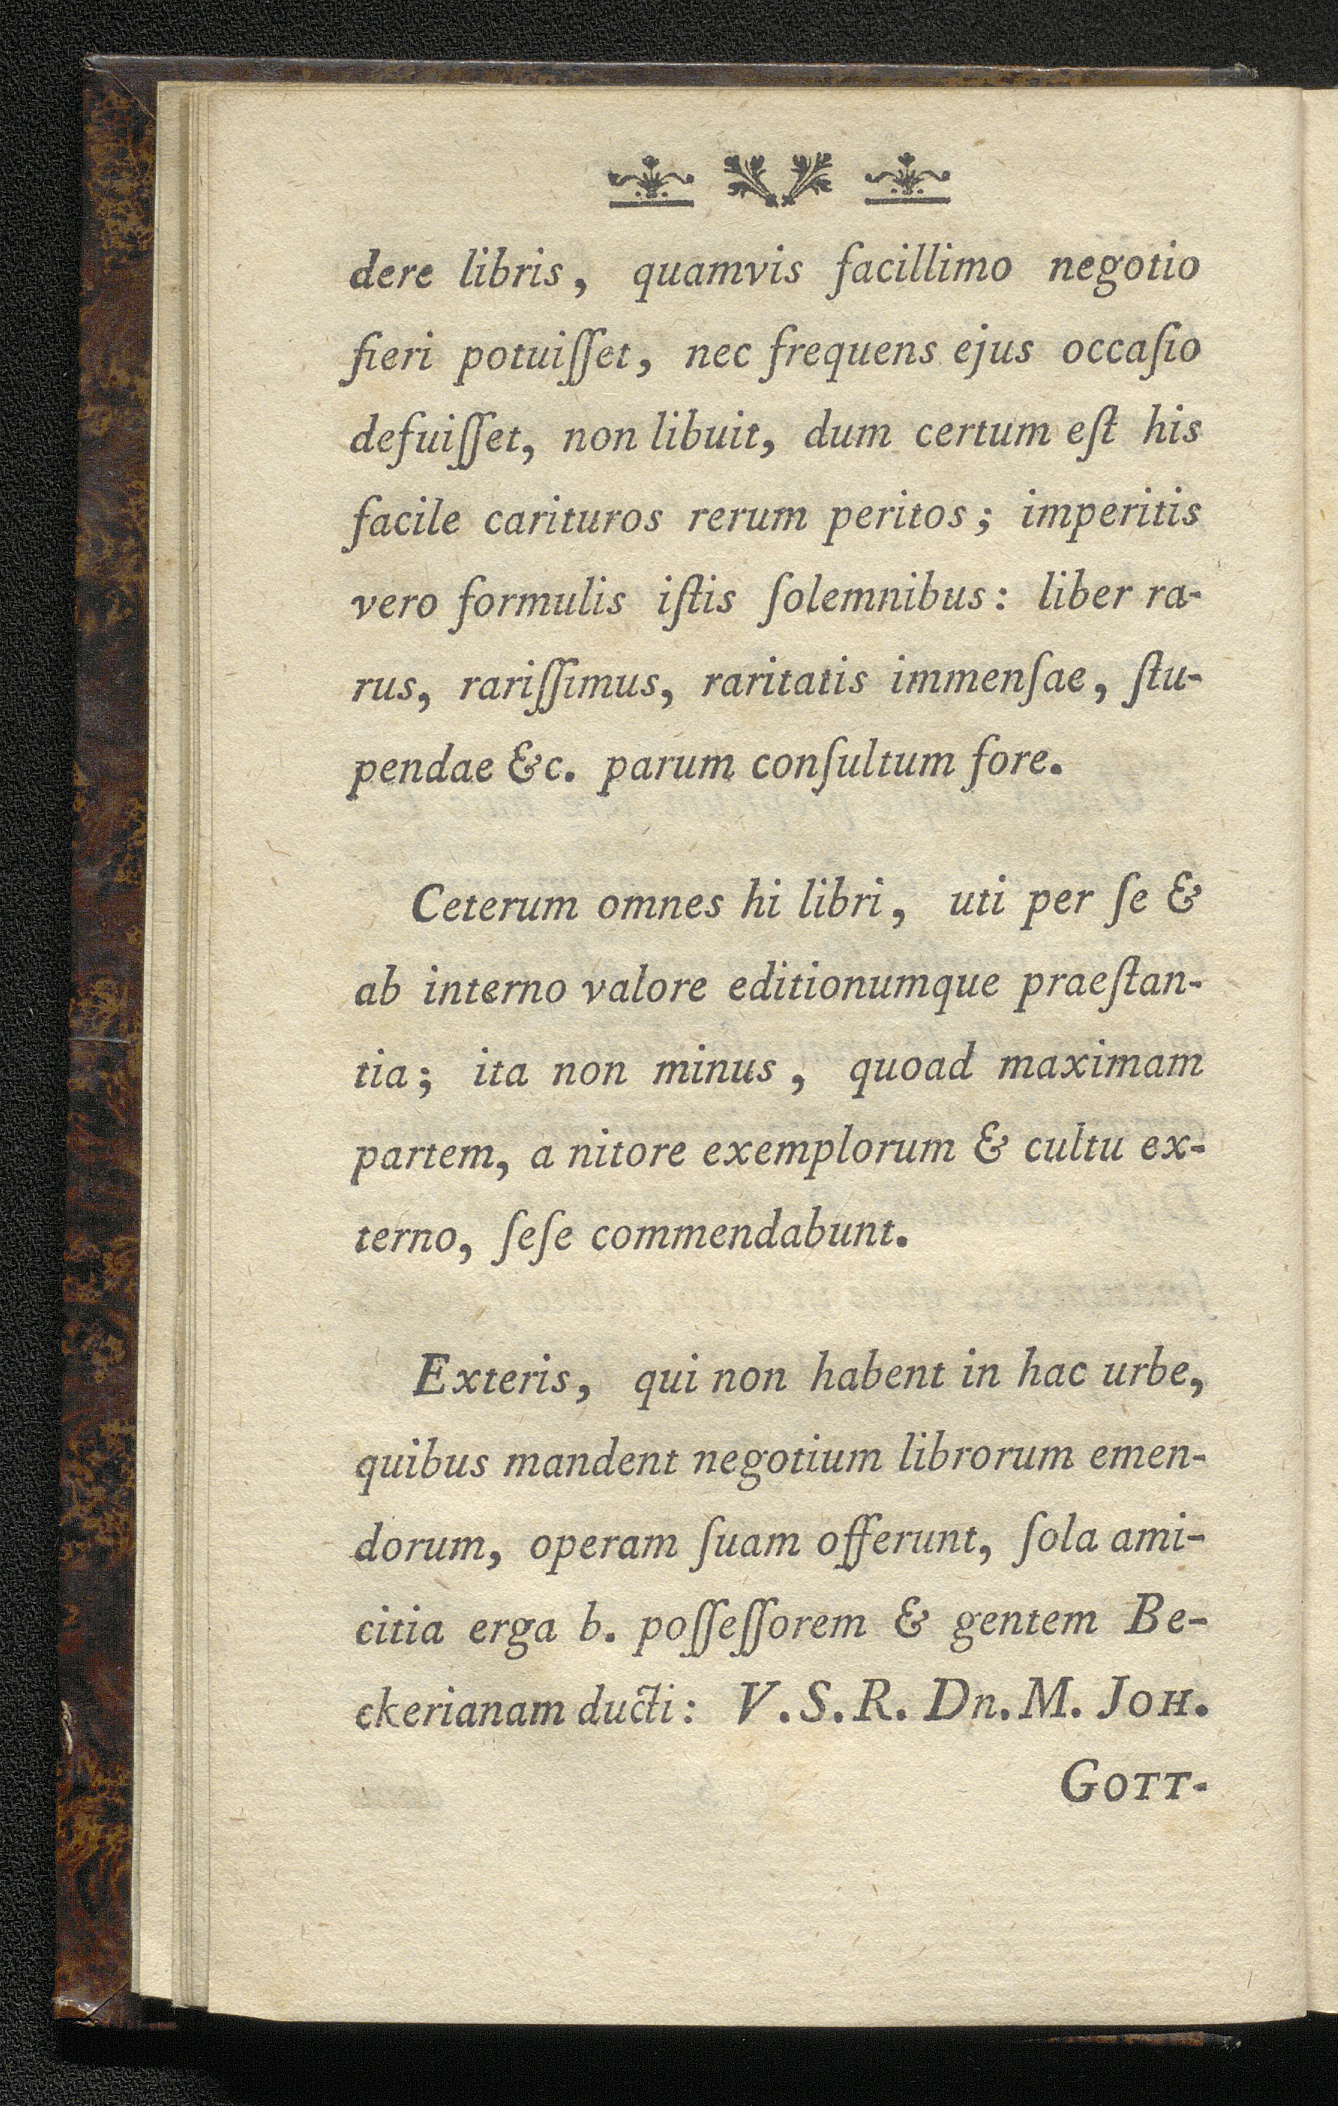 dere libris, quamvis facillimo negotio
fieri potuiſſet, nec frequens ejus occaſio
defuiſſet, non libuit, dum certum eſt his
facile carituros rerum peritos; imperitis
vero formulis iſtis ſolemnibus: liber ra-
rus, rariſſimus, raritatis immenſae, ſtu-
pendae &c. parum conſultum fore.
Ceterum omnes hi libri, uti per ſe &
ab interno valore editionumque praeſtan-
tia; ita non minus, quoad maximam
partem, a nitore exemplorum & cultu ex-
terno, ſeſe commendabunt.
Exteris, qui non habent in hac urbe,
quibus mandent negotium librorum emen-
dorum, operam ſuam offerunt, ſola ami-
citia erga b. poſſeſſorem & gentem Be-
ckerianam ducti: V. S. R. Dn. M. JOH.
GOTT-